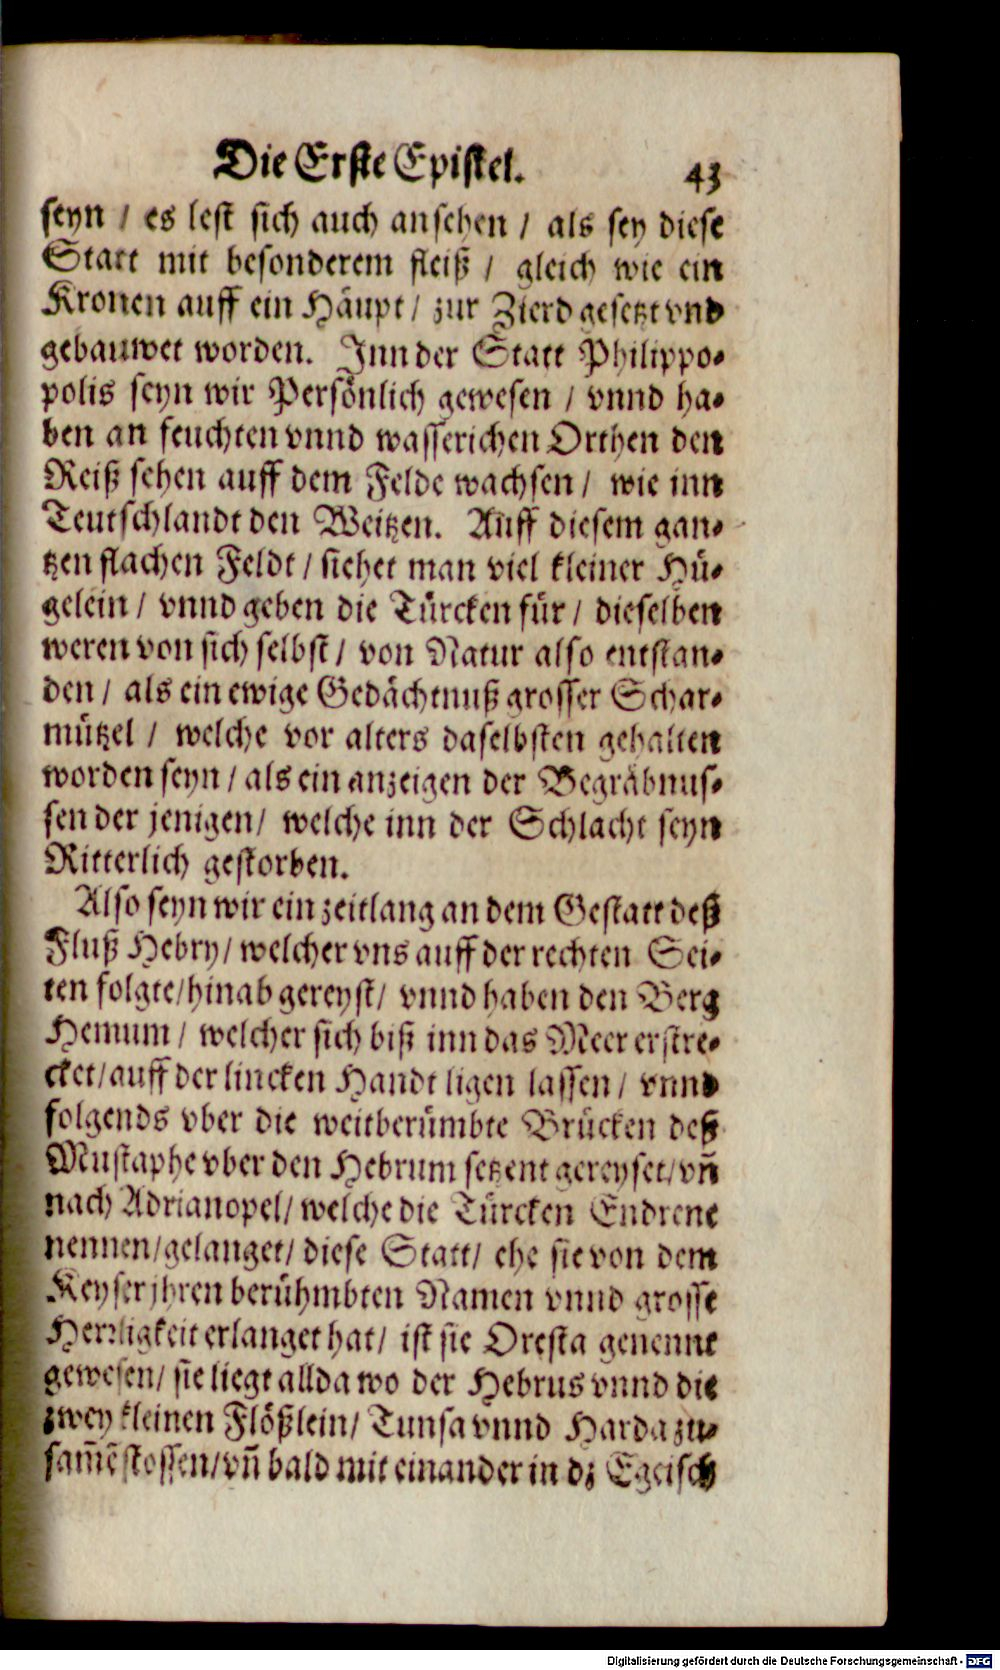 Die Erste Epistel. 43
seyn / es lest sich auch ansehen / als sey diese
Statt mit besonderem fleiß / gleich wie ein
Kronen auff ein Häupt / zur Zierd gesetzt vnd
gebauwet worden. Inn der Statt Philippo-
polis seyn wir Persönlich gewesen / vnnd ha-
ben an feuchten vnnd wasserichen Orthen den
Reiß sehen auff dem Felde wachsen / wie inn
Teutschlandt den Weitzen. Auff diesem gan-
tzen flachen Feldt / siehet man viel kleiner Hü-
gelein / vnnd geben die Türcken für / dieselben
weren von sich selbst / von Natur also entstan-
den / als ein ewige Gedächtnuß grosser Schar-
mützel / welche vor alters daselbsten gehalten
worden seyn / als ein anzeigen der Begräbnus-
sen der jenigen / welche inn der Schlacht seyn
Ritterlich gestorben.
Also seyn wir ein zeitlang an dem Gestatt deß
Fluß Hebry / welcher vns auff der rechten Sei-
ten folgte / hinab gereyst / vnnd haben den Berg
Hemum / welcher sich biß inn das Meer erstre-
cket / auff der lincken Handt ligen lassen / vnnd
folgends vber die weitberümbte Brücken deß
Mustaphe vber den Hebrum setzent gereyset / vñ
nach Adrianopel / welche die Türcken Endrene
nennen / gelanget / diese Statt / ehe sie von dem
Keyser jhren berühmbten Namen vnnd grosse
Herrligkeit erlanget hat / ist sie Oresta genennt
gewesen / sie liegt allda wo der Hebrus vnnd die
zwey kleinen Flößlein / Tunsa vnnd Harda zu-
sam̃ẽ stossen / vñ bald mit einander in dz Egeisch
Digitalisierung gefördert durch die Deutsche Forschungsgemeinschaft - DFG